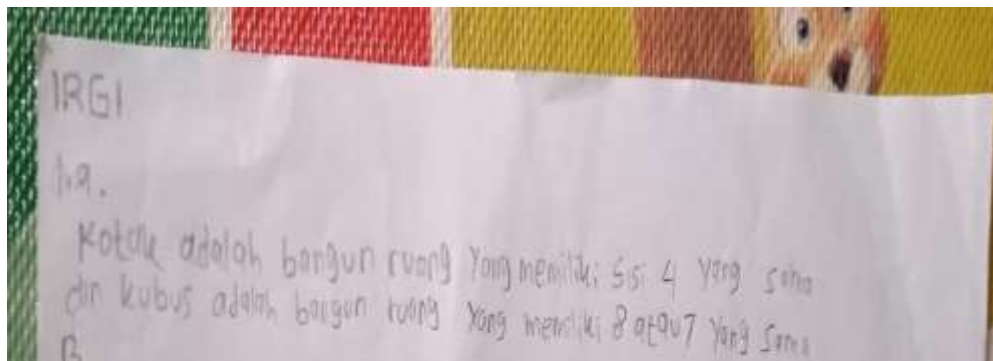 IRGI
1.a.
Kotak adalah bangun ruang yang memiliki sisi 4 yang sama
dan kubus adalah bangun ruang yang memiliki 8 atau 7 yang sama
B